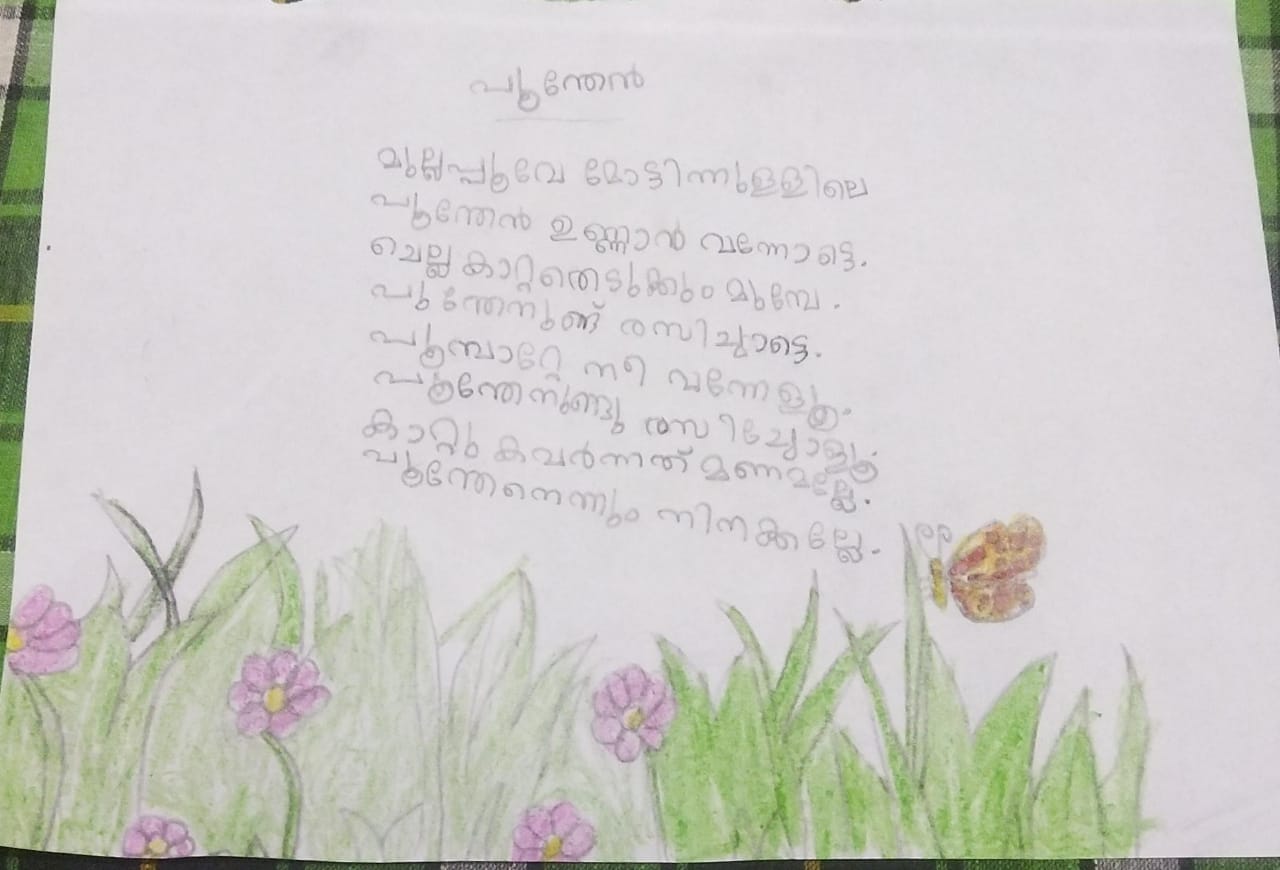 പൂന്തേൻ
മുല്ലപ്പൂവേ മോട്ടിന്നുള്ളിലെ
പൂന്തേൻ ഉണ്ണാൻ വന്നോട്ടെ.
ചെല്ല കാറ്റതെടുക്കും മുമ്പേ.
പൂന്തേനുണ്ട് രസിച്ചാട്ടെ.
പൂമ്പാറ്റേ നീ വന്നേളൂ.
പൂന്തേനുണ്ടു രസിച്ചോളൂ.
കാറ്റു കവർന്നത് മണമല്ലേ.
പൂന്തേനെന്നും നിനക്കല്ലേ.